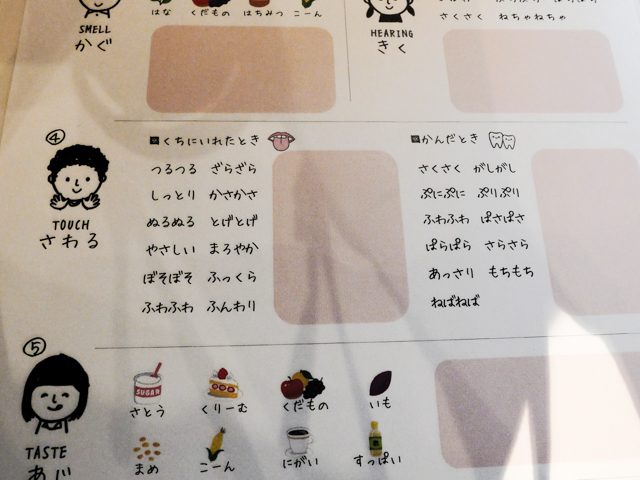 はな くだもの はちみつ こーん
SMELL
かぐ
さくさく ねちゃねちゃ
HEARING
きく
④
くちにいれたとき
つるつる ざらざら
しっとり かさかさ
ぬるぬる とげとげ
やさしい まろやか
ぼそぼそ ふっくら
ふわふわ ふんわり
かんだとき
さくさく がしがし
ぷにぷに ぷりぷり
ふわふわ ぱさぱさ
ぱらぱら さらさら
あっさり もちもち
ねばねば
TOUCH
さわる
⑤
SUGAR
さとう くりーむ くだもの いも
まめ こーん にがい すっぱい
TASTE
あじ